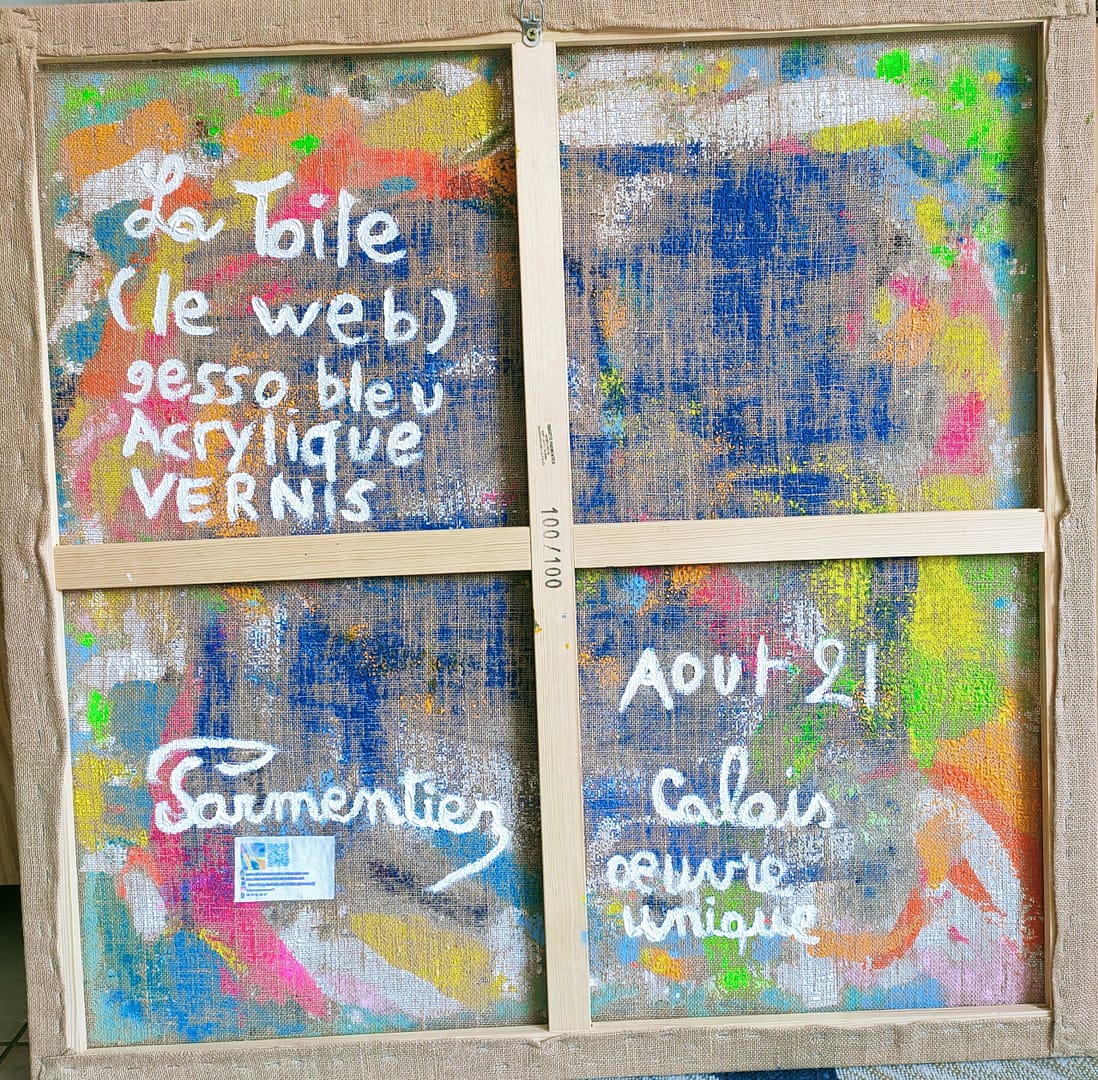 La Toile
(le web)
gesso bleu
Acrylique
VERNIS
100/100
Sarmentier
Aout 21
Calais
oeuvre
unique